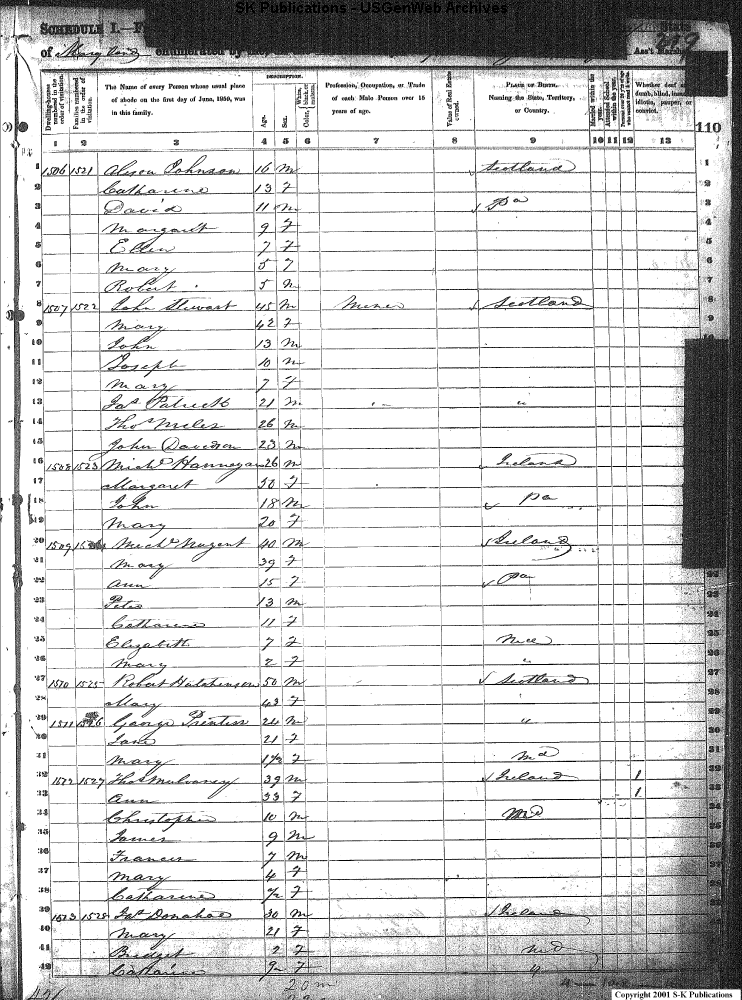 SK Publications - USGenWeb Archives
SCHEDULE I.
of Maryland enumerated by
Ass't
Dwelling-houses numbered in the order of visitation.
Families numbered in the order of visitation.
The Name of every Person whose usual place of abode on the first day of June, 1850, was in this family.
DESCRIPTION.
Age.
Sex.
Color, White, black, or mulatto.
Profession, Occupation, or Trade of each Male Person over 15 years of age.
Value of Real Estate owned.
PLACE OF BIRTH. Naming the State, Territory, or Country.
Married within the year.
Attended School within the year.
Whether deaf and dumb, blind, insane, idiotic, pauper, or convict.
110
1 2 3 4 5 6 7 8 9 10 11 12 13
1 1506 1521 Johnson 16 m Scotland 1
2 Catharine 13 F 2
3 David 11 m Pa 3
4 Margaret 9 F 4
5 Ellen 7 F 5
6 Mary 5 F 6
7 Robert 5 m 7
8 1507 1522 John Stewart 45 m Miner Scotland 8
9 Mary 42 F 9
10 John 13 m
11 Joseph 10 m
12 Mary 7 F
13 Jas Patrick 21 m "
14 Thos Miles 26 m
15 John Davidson 23 m
16 1508 1523 Michl Hannegan 26 m Ireland
17 Margaret 50 F
18 John 18 m Pa
19 Mary 20 F
20 1509 Michl Nugent 40 m Ireland
21 Mary 39 F
22 Ann 15 F Pa
23 Peter 13 m 23
24 Catharine 11 F 24
25 Elizabeth 7 F 25
26 Mary 2 F " 26
27 1510 1525 Robert Hutchinson 50 m Scotland 27
28 Mary 43 F 28
29 1511 1526 George Prentiss 24 m " 29
30 Jane 21 F
31 Mary 1/2 F Md 31
32 1512 1527 Thos Mulvaney 39 m Ireland 1
33 Ann 33 F 1
34 Christopher 10 m Md
35 James 9 m
36 Francis 7 m
37 Mary 4 F
38 Catharine F
39 1513 1528 Jas Donahoe 30 m Ireland
40 Mary 21 F
41 Bridget 2 F Md
42 Catharine F "
20 m
Copyright 2001 S-K Publications